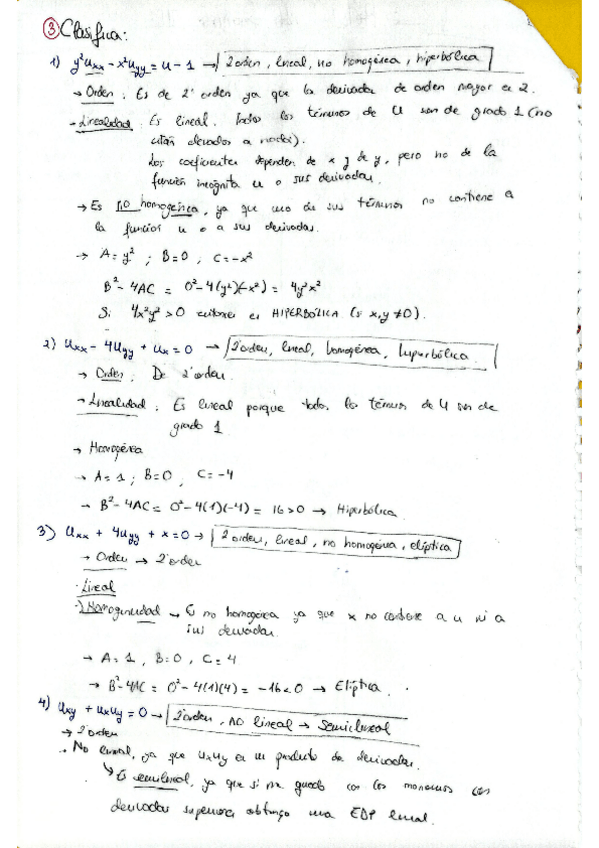 ③ Clasifica:
1) y²uxx - x²uyy = u - 1 → 2ºorden, lineal, no homogénea, hiperbólica
→ Orden: Es de 2º orden ya que la derivada de orden mayor es 2.
→ Linealidad: Es lineal. Todos los términos de U son de grado 1 (no
están elevados a nada).
Los coeficientes dependen de x y de y, pero no de la
función incógnita u o sus derivadas.
→ Es no homogénea, ya que uno de sus términos no contiene a
la función u o a sus derivadas.
→ A = y² ; B = 0 , C = -x²
B² - 4AC = 0² - 4(y²)(-x²) = 4y²x²
Si 4x²y² > 0 entonces es HIPERBÓLICA (si x,y ≠ 0).
2) Uxx - 4Uyy + Ux = 0 → 2ºorden, lineal, homogénea, hiperbólica.
→ Orden: De 2ºorden.
→ Linealidad: Es lineal porque todos los términos de U son de
grado 1
→ Homogénea
→ A = 1 ; B = 0 , C = -4
→ B² - 4AC = 0² - 4(1)(-4) = 16 > 0 → Hiperbólica.
3) Uxx + 4Uyy + x = 0 → 2ºorden, lineal, no homogénea, elíptica
→ Orden → 2ºorden
· Lineal
→ Homogeneidad → Es no homogénea ya que x no contiene a u ni a
sus derivadas.
→ A = 1 , B = 0 , C = 4
→ B² - 4AC = 0² - 4(1)(4) = -16 < 0 → Elíptica.
4) Uxy + UxUy = 0 → 2ºorden, no lineal → Semilineal
→ 2ºorden
→ No lineal, ya que UxUy es un producto de derivadas.
↳ Es semilineal, ya que si me quedo con los monomios con
derivadas superiores obtengo una EDP lineal.